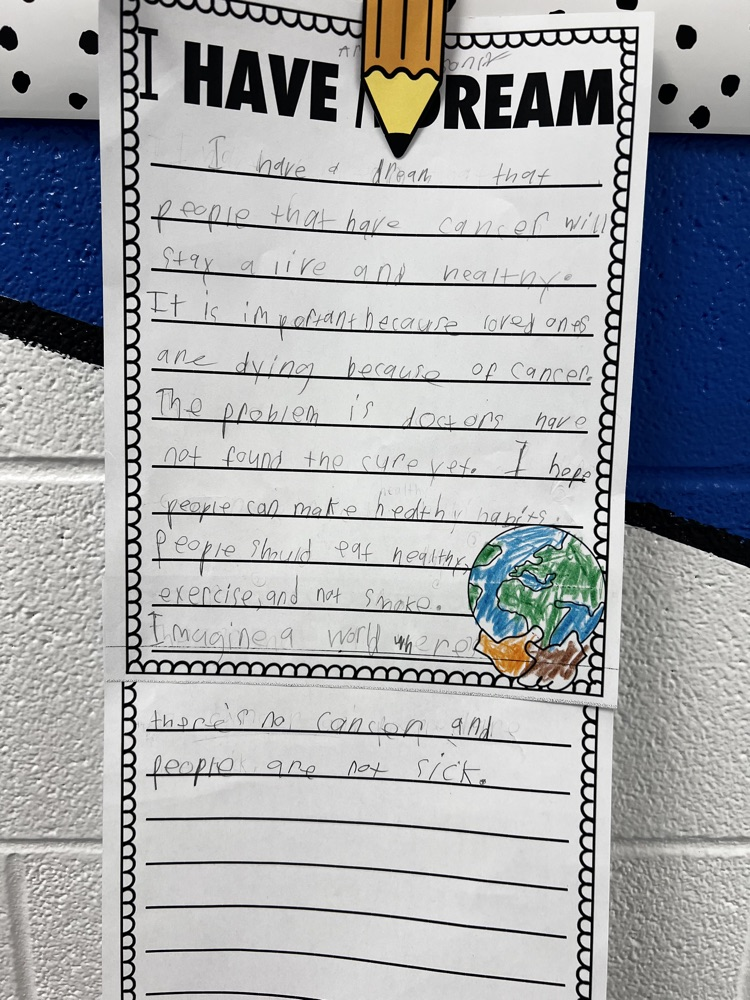 I HAVE A DREAM
I have a dream that
people that have cancer will
stay a live and healthy.
It is important because loved ones
are dying because of cancer.
The problem is doctors have
not found the cure yet. I hope
people can make healthy habits.
People should eat healthy,
exercise, and not smoke.
Imagine a world where
there's no cancer and
people are not sick.